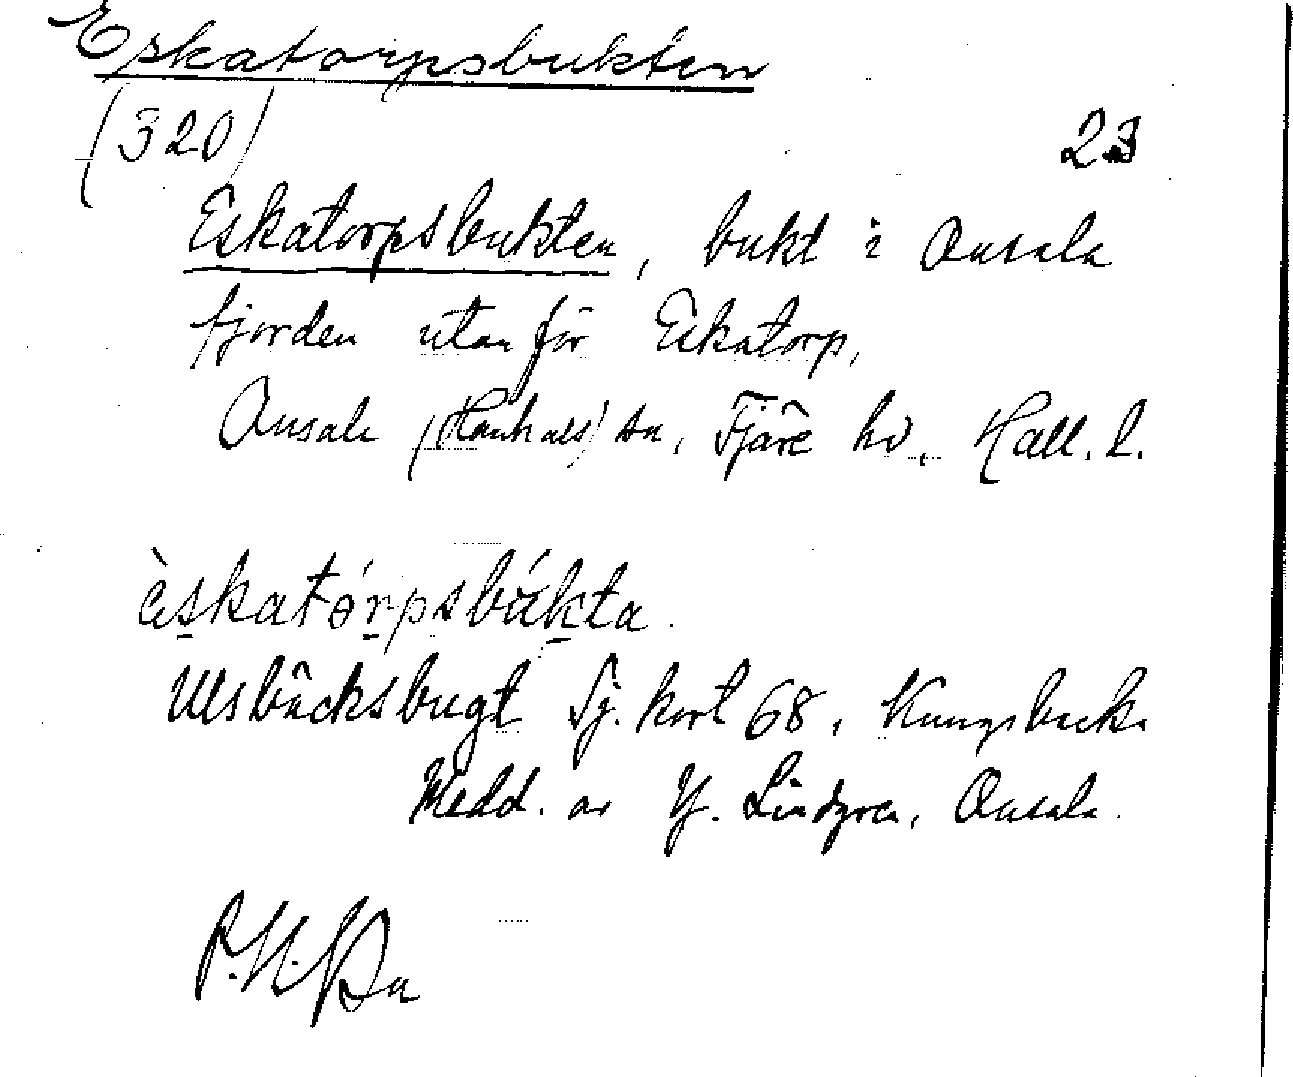 Eskatorpsbukten
(320) 23
Eskatorpsbukten, bukt i Onsala
fjorden utanför Eskatorp,
Onsala (Hanhals) sn, Fjäre hd, Hall. l.
èskatórpsbúkta.
Ulsbäcksbugt Sj. kort 68, Kungsbacka
Medd. av Y. Lindgren, Onsala.